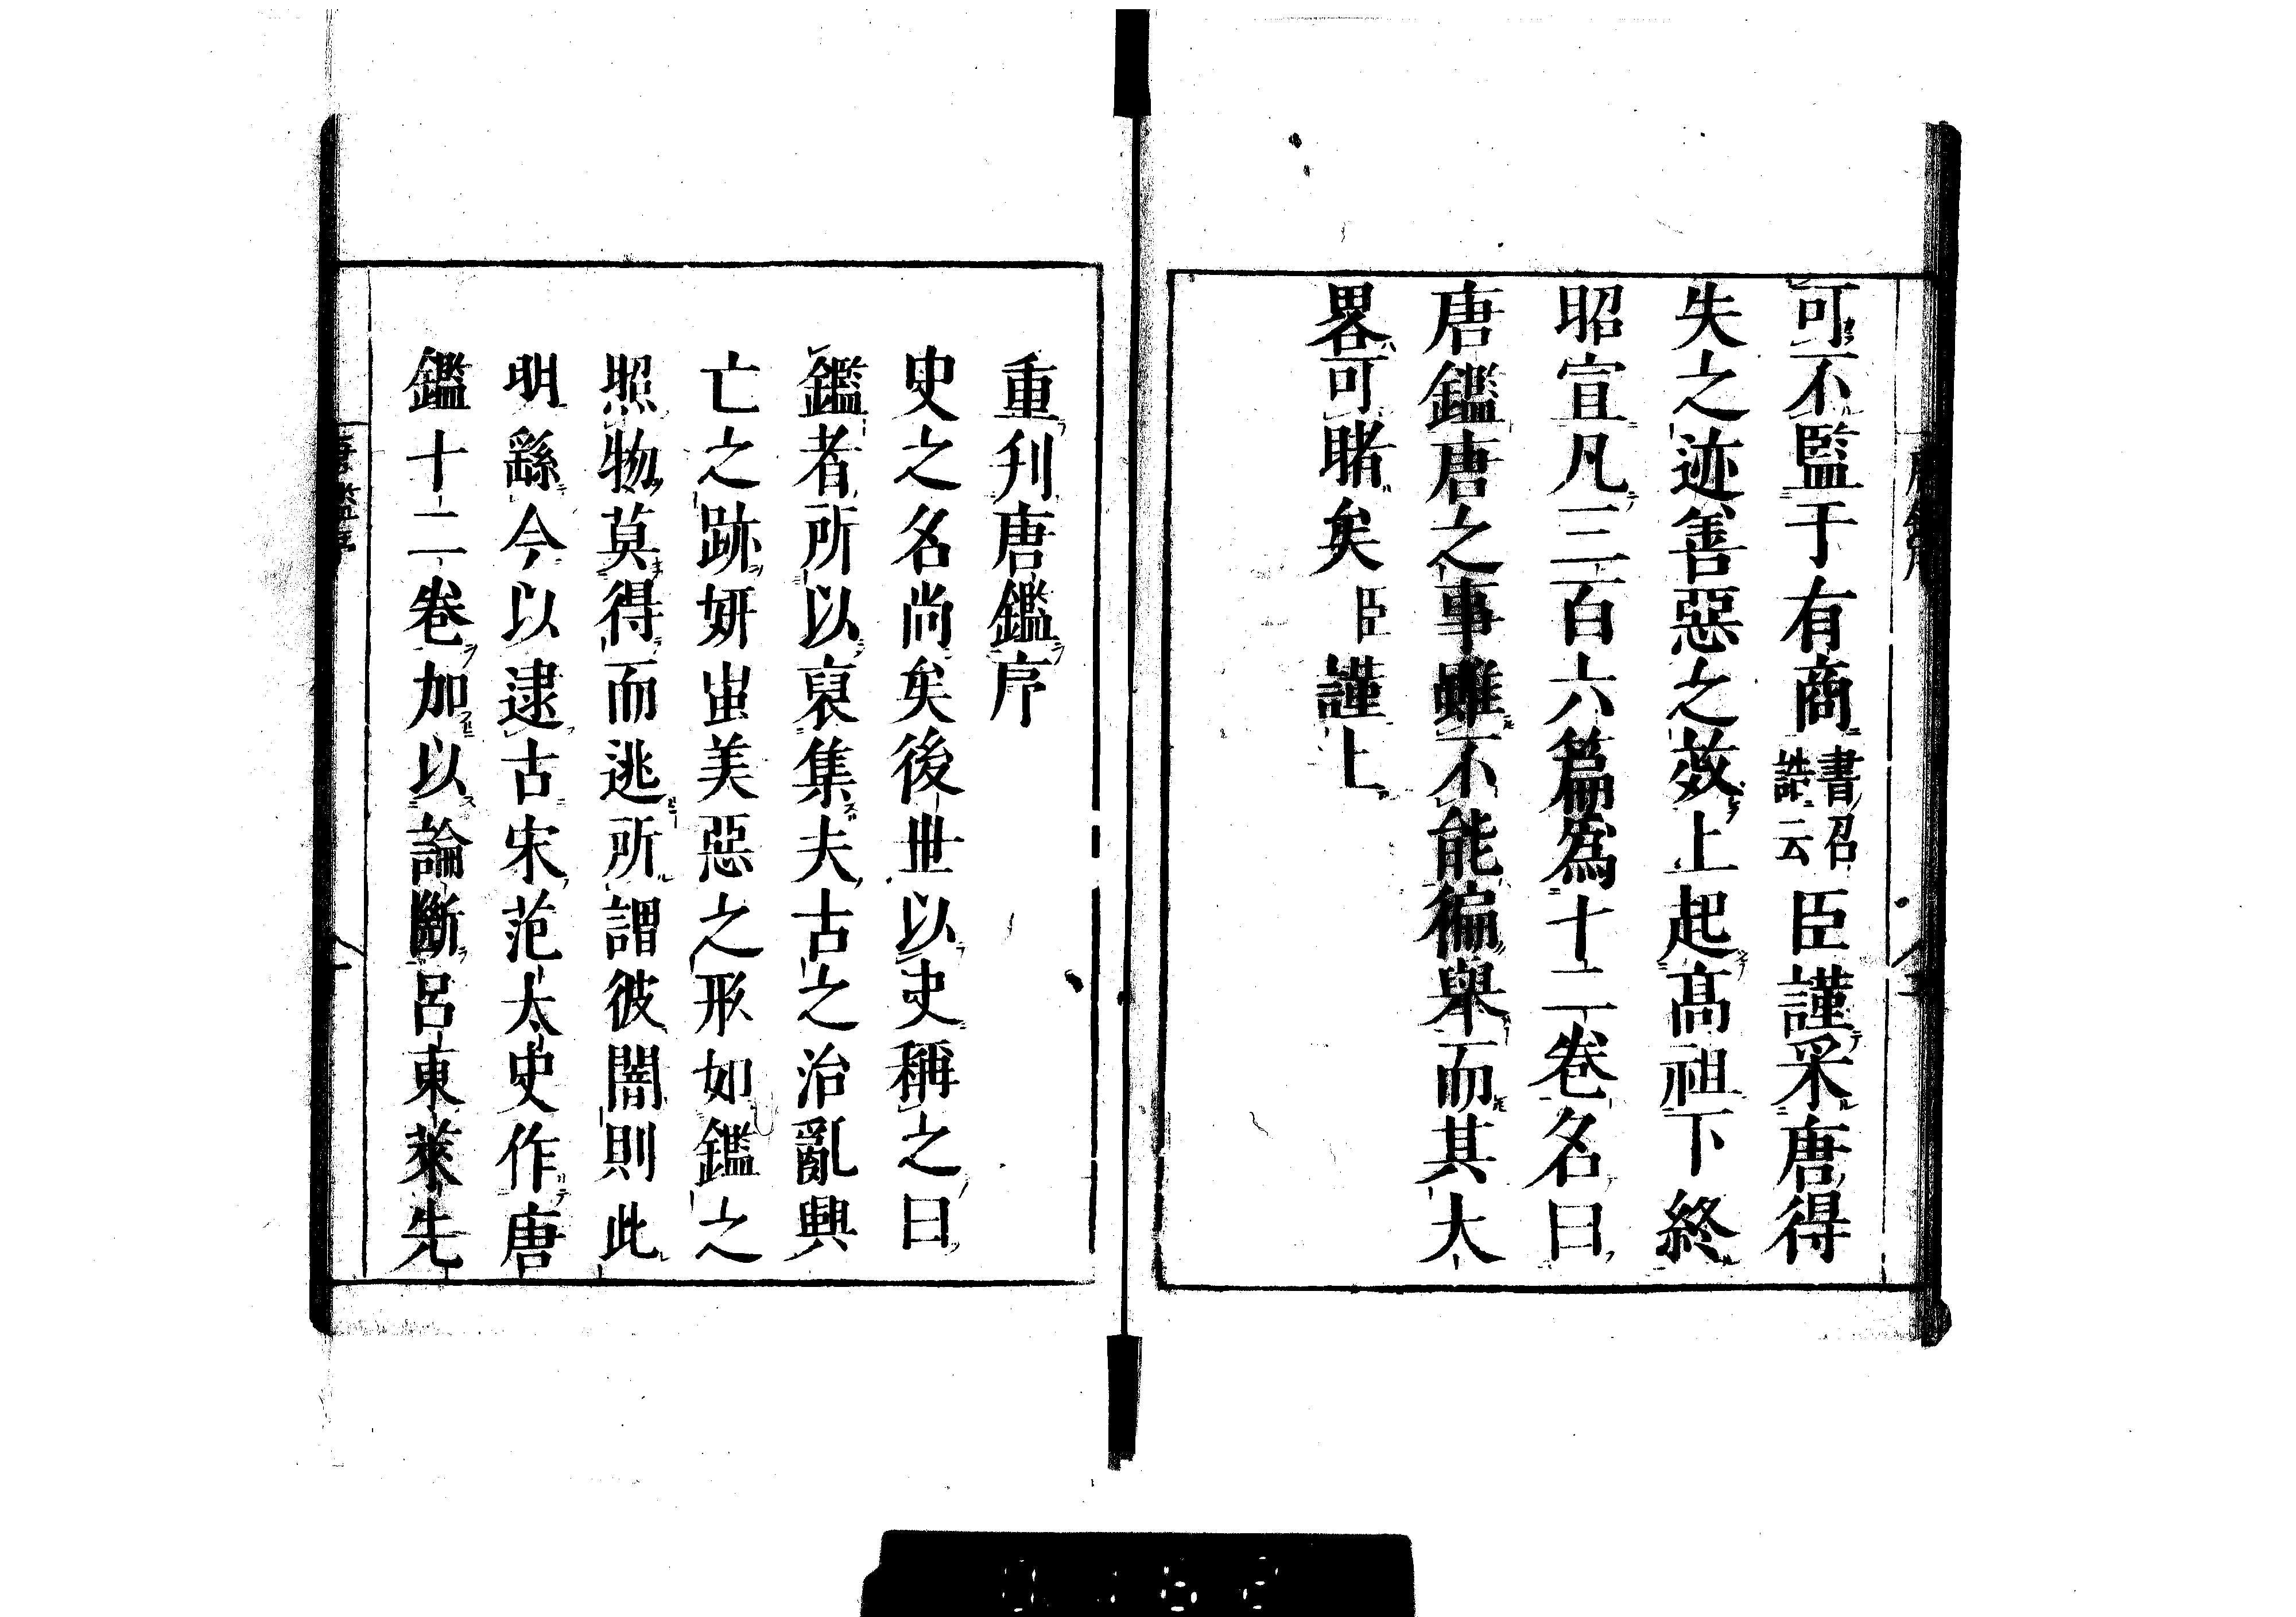 可不監于有商書召誥云臣謹采唐得
失之迹善惡之效上起高祖下終
昭宣凡三百六篇為十二卷名曰
唐鑑唐之事雖不能徧舉而其大
畧可睹矣臣謹上
重刋唐鑑序
史之名尚矣後世以史稱之曰
鑑者所以裒集夫古之治亂興
亡之跡妍蚩美惡之形如鑑之
照物莫得而逃所謂彼闇則此
明繇今以逮古宋范太史作唐
鑑十二卷加以論斷呂東萊先